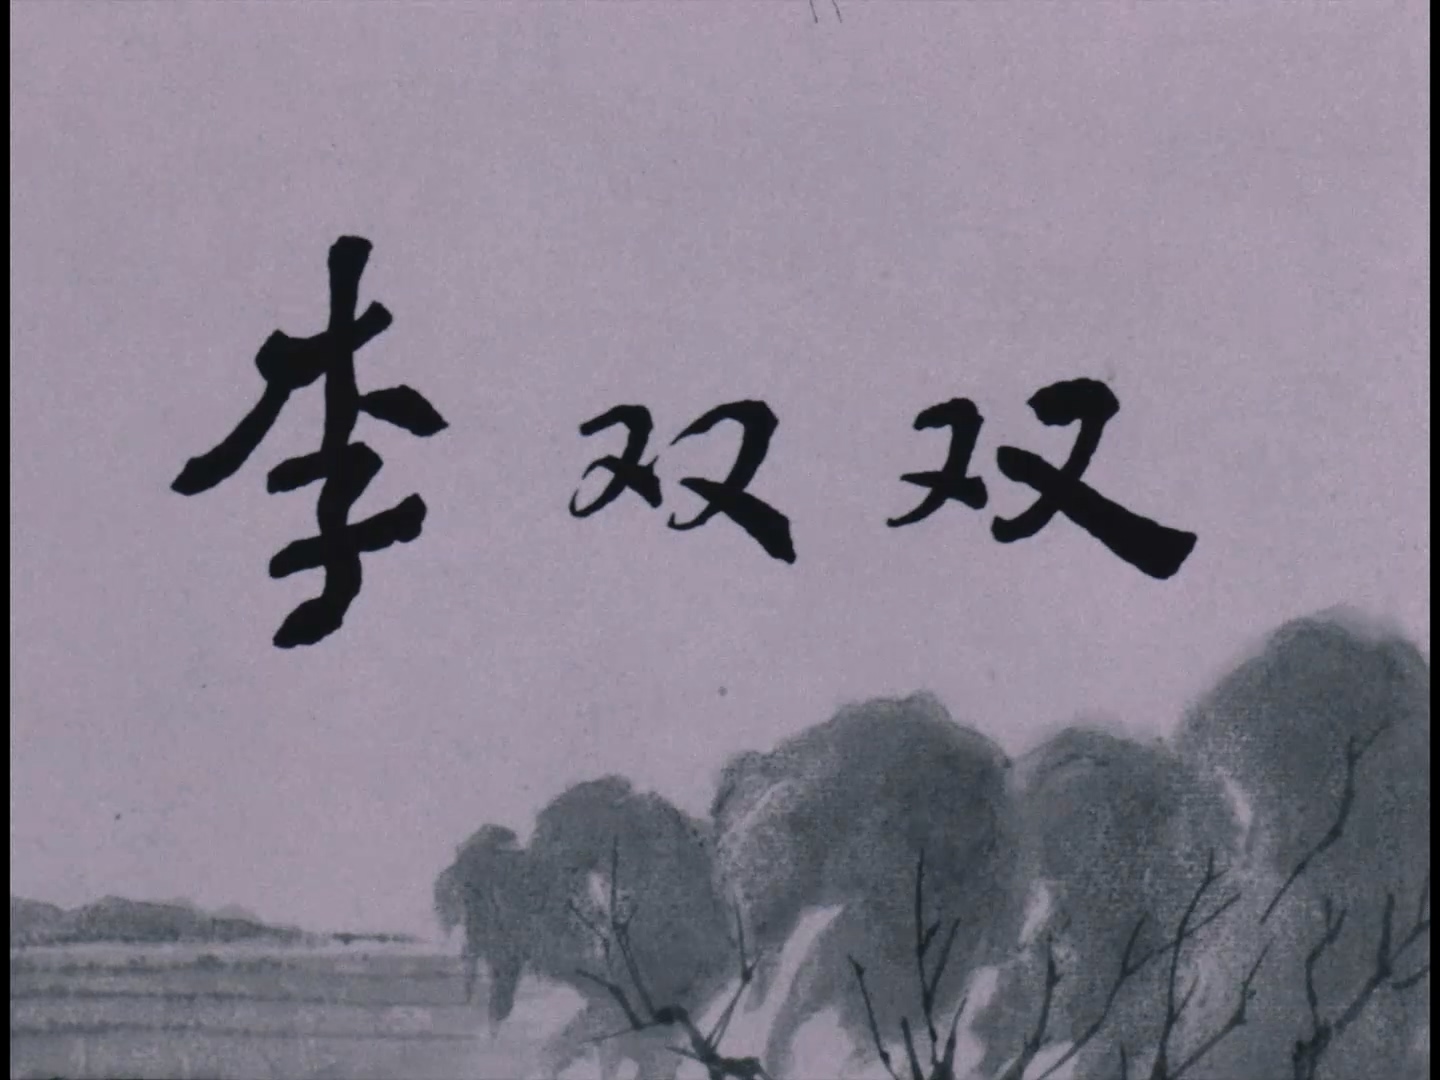 李双双